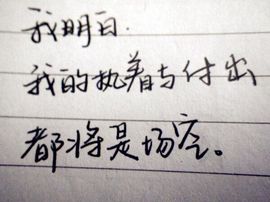 我明白.
我的执着与付出
都将是场空。